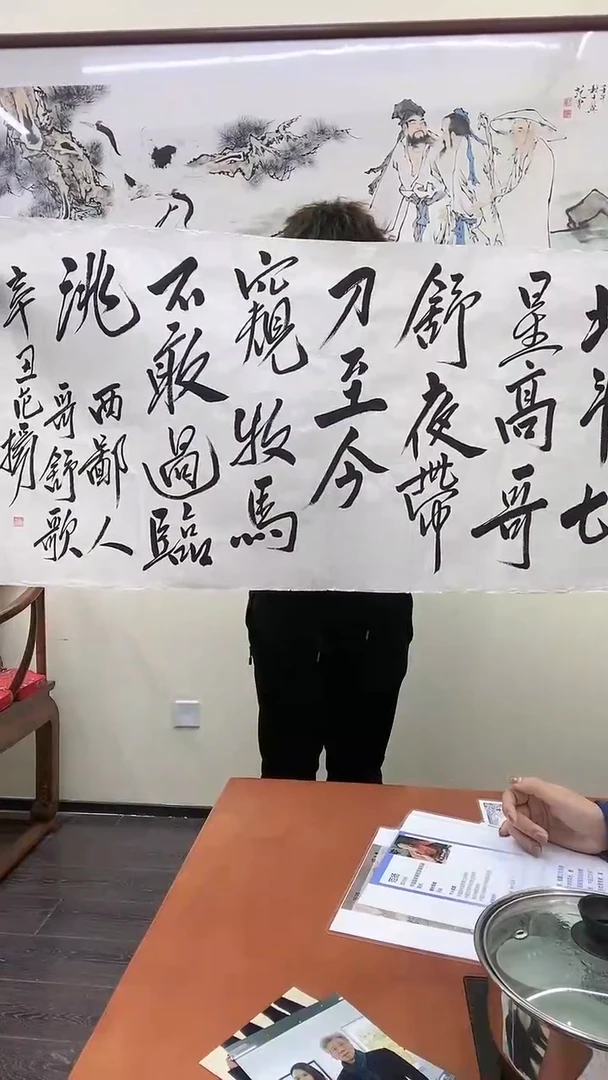 北斗七
星高哥
舒夜帶
刀至今
窺牧馬
不敢過臨
洮
西鄙人
哥舒歌
辛丑范揚